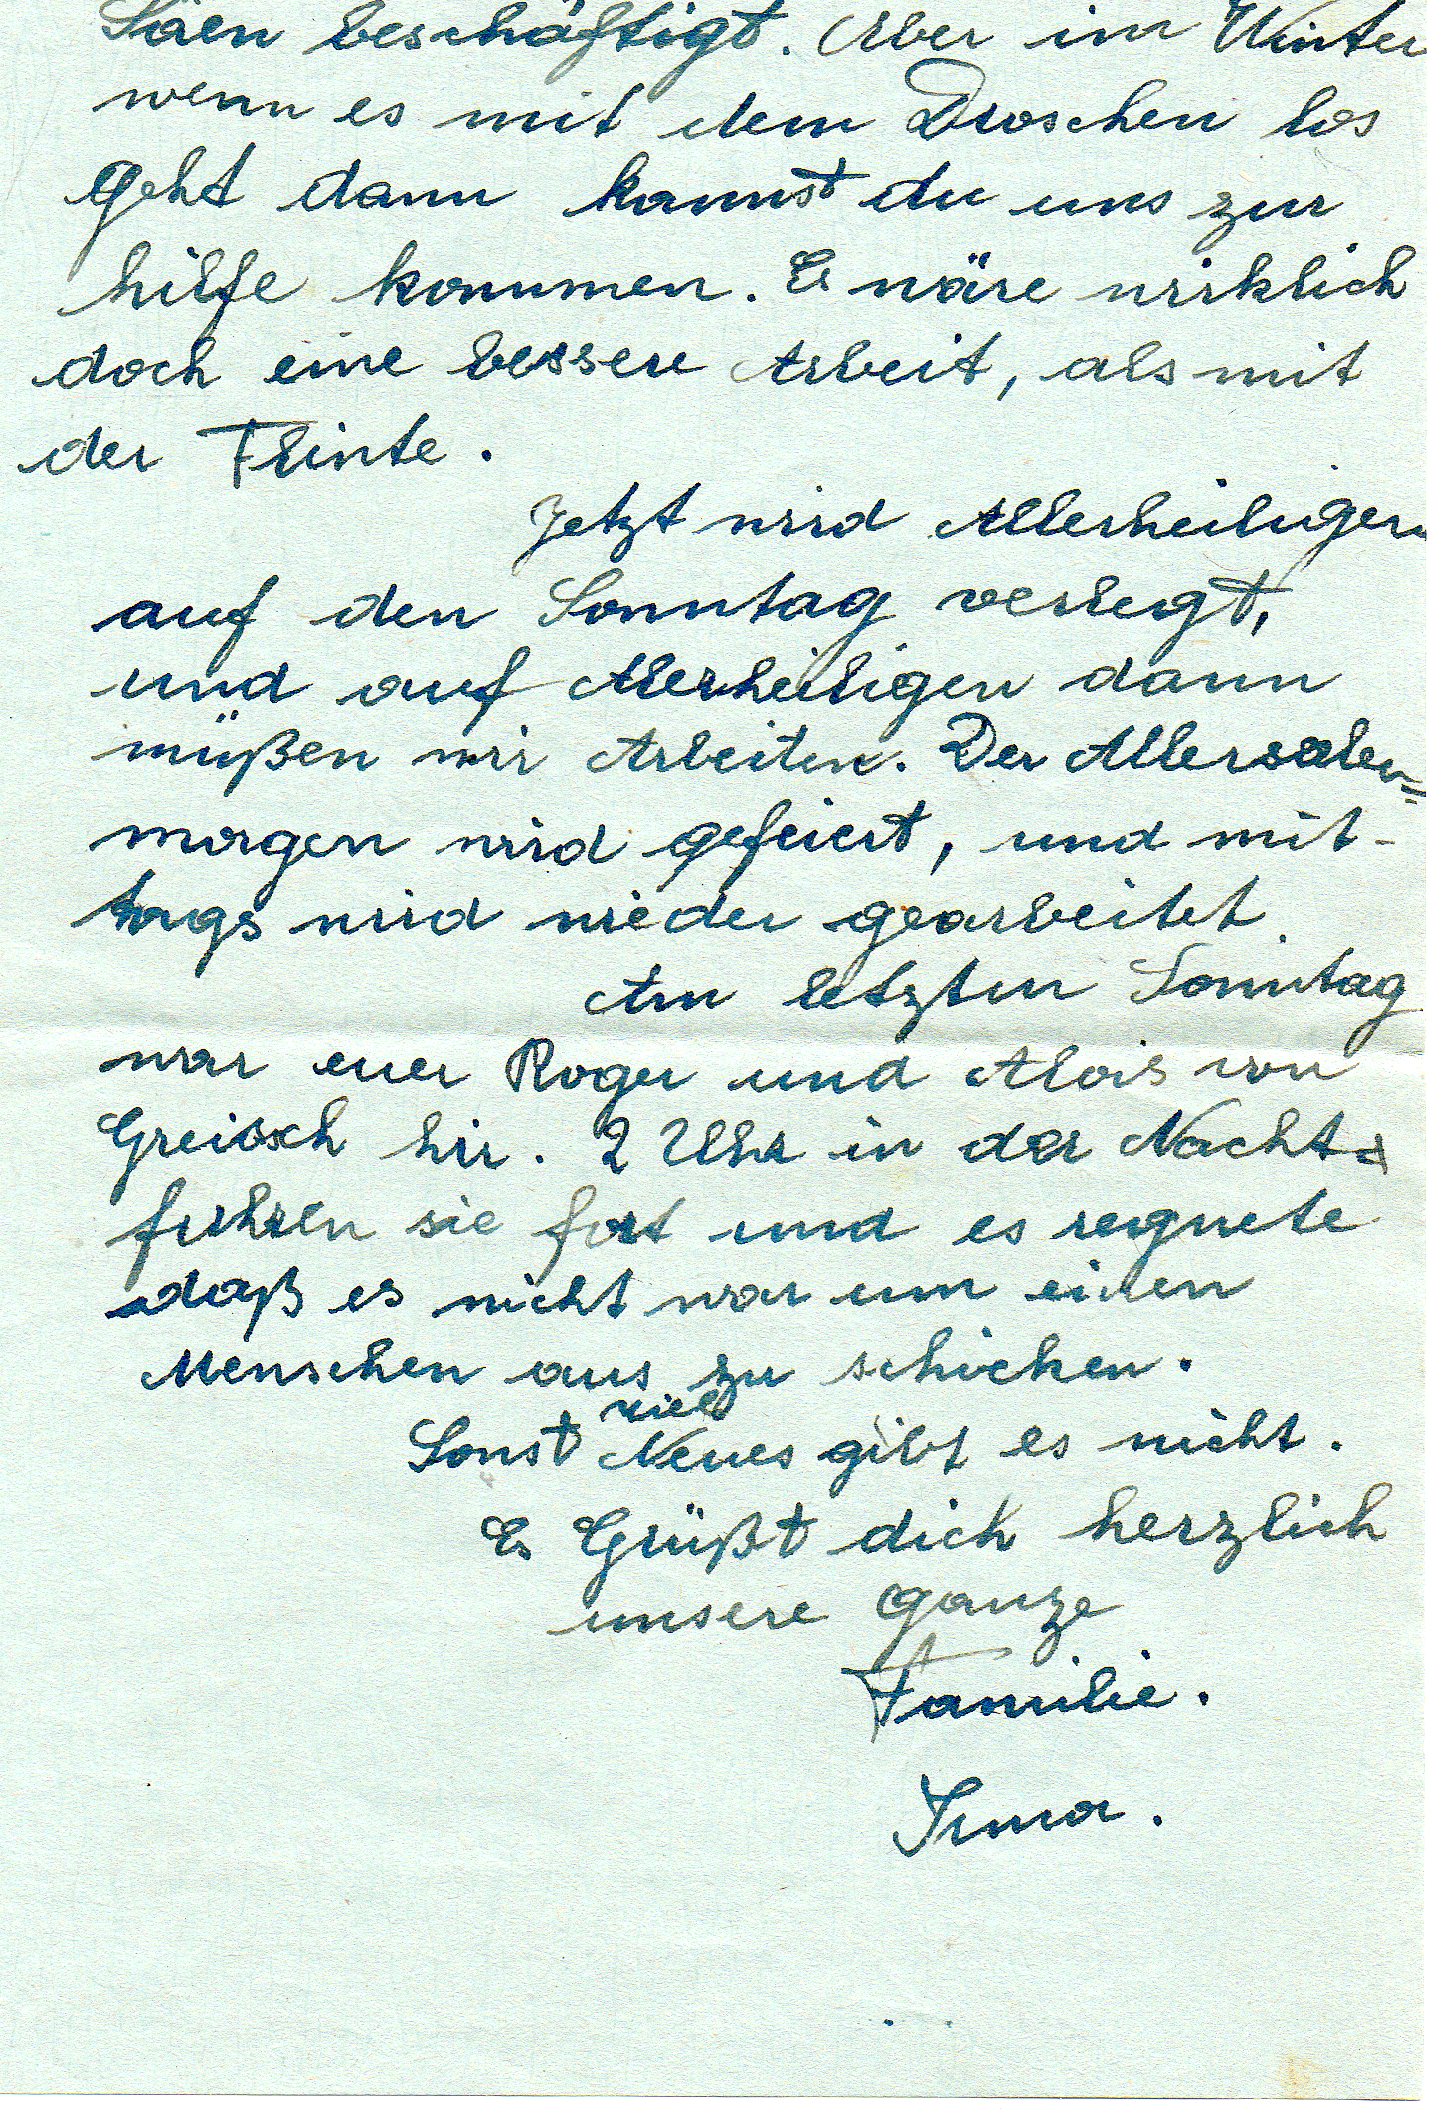 Säen beschäftigt. Aber im Winter
wenn es mit dem Droschen los
geht dann kannst du uns zur
hilfe kommen. Es wäre wirklich
doch eine bessere Arbeit, als mit
der Flinte.
Jetzt wird Allerheiligen
auf den Sonntag verlegt,
und auf Allerheiligen dann
müßen wir Arbeiten. Der Allerseelen=
morgen wird gefeiert, und mit-
tags wird wieder gearbeitet.
Am letzten Sonntag
war euer Roger und Alois von
Greisch hir. 2 Uhr in der Nacht
fuhren sie fort und es regnete
daß es nicht war um einen
Menschen aus zu schicken.
viel
Sonst Neues gibt es nicht.
Es Grüßt dich herzlich
unsere ganze
Familie.
Irma.